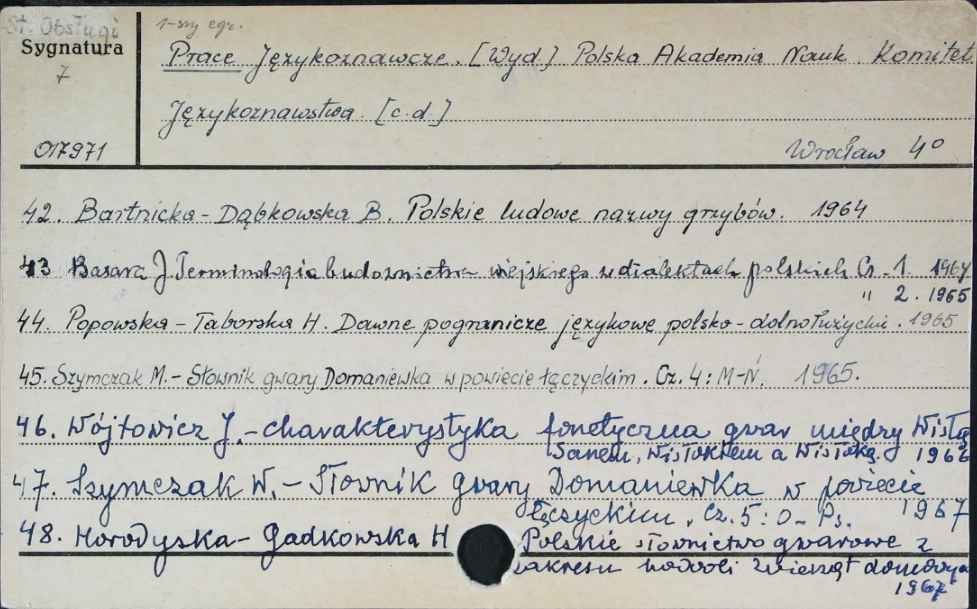 St. Obsługi
1-szy egz.
Sygnatura
7
017971
Prace Językoznawcze. [Wyd] Polska Akademia Nauk. Komitet
Językoznawstwa. [c.d]
Wrocław 4°
42. Bartnicka-Dąbkowska B. Polskie ludowe nazwy grzybów. 1964
43 Basara J. Terminologia budownictwa wiejskiego w dialektach polskich Cz. 1. 1964
" 2. 1965
44. Popowska-Taborska H. Dawne pogranicze językowe polsko-dolnołużyckie. 1965
45. Szymczak M. - Słownik gwary Domaniewka w powiecie łęczyckim. Cz. 4: M-Ń. 1965.
46. Wójtowicz J. - charakterystyka fonetyczna gwar między Wisłą
Sanem, Wisłokiem a Wisłoką. 1966
47. Szymczak W. - Słownik gwary Domaniewka w powiecie
Łęczyckim. Cz. 5: O-Ps. 1967
48. Horodyska-Gadkowska H Polskie słownictwo gwarowe z
zakresu hodowli zwierząt domowych
1967